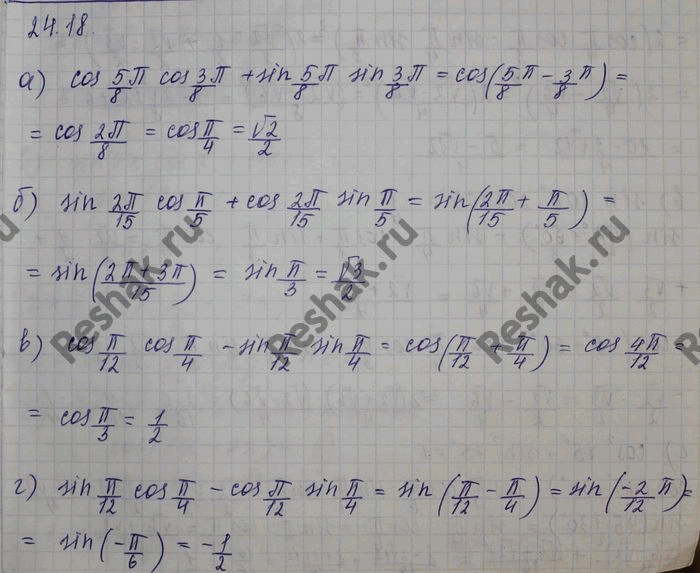 24.18.
а) cos 5/8 π cos 3/8 π + sin 5/8 π sin 3/8 π = cos(5/8 π - 3/8 π) =
= cos 2π/8 = cos π/4 = √2/2
б) sin 2π/15 cos π/5 + cos 2π/15 sin π/5 = sin(2π/15 + π/5) =
= sin(2π+3π/15) = sin π/3 = √3/2
в) cos π/12 cos π/4 - sin π/12 sin π/4 = cos(π/12 + π/4) = cos 4π/12 =
= cos π/3 = 1/2
г) sin π/12 cos π/4 - cos π/12 sin π/4 = sin(π/12 - π/4) = sin(-2/12 π) =
= sin(-π/6) = -1/2
Reshak.ru
Reshak.ru
Reshak.ru